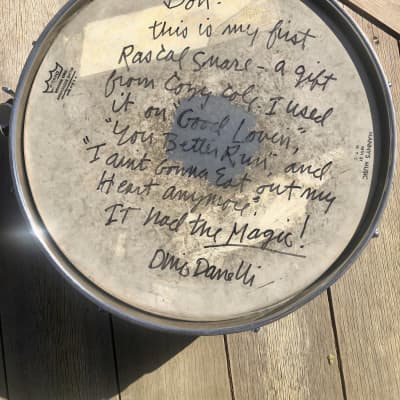 Don:
this is my first
Rascal Snare - a gift
from Cozy Cole. I used
it on "Good Lovin",
"You Better Run" and
"I aint Gonna Eat out my
Heart anymore".
IT had the Magic!
Dino Danelli
REMO
MANNY'S MUSIC